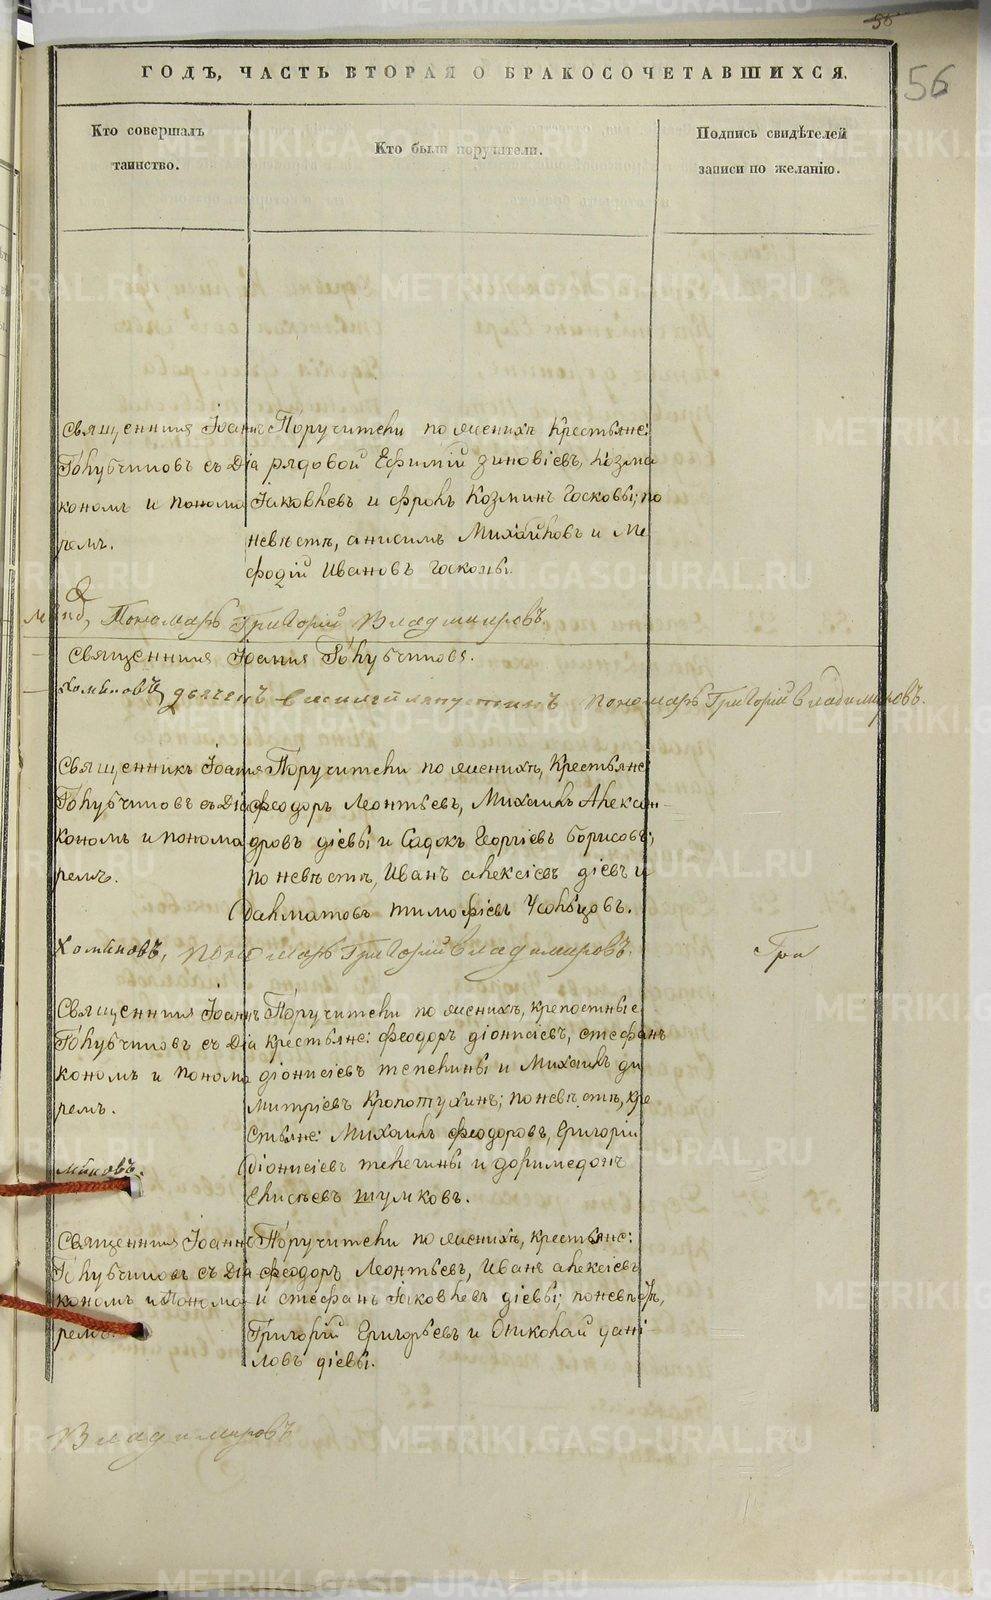 56
56
ГОДЪ, ЧАСТЬ ВТОРАЯ О БРАКОСОЧЕТАВШИХСЯ.
Кто совершалъ таинство.
Кто были поручители.
Подпись свидѣтелей записи по желанію.
Священникъ Іоаннъ
Голубчиковъ съ Діа
кономъ и понома
ремъ.
Поручители по женихѣ Крестьяне:
рядовой Ефимій Зиновіевъ, Козма
Іаковлевъ и Фролъ Козминъ Госковы; по
невѣстѣ, Анисимъ Михайловъ и Ме
фодій Ивановъ Госковы.
Пономарь Григорій Владимировъ
Священникъ Іоаннъ Голубчиковъ.
Хоминовъ, дьячекъ Василей Лапустинъ пономарь Григорій Владимировъ.
Священникъ Іоаннъ
Голубчиковъ съ Діа
кономъ и понома
ремъ.
Поручители по женихѣ, Крестьяне
Феодоръ Леонтьевъ, Михаилъ Алексан-
дровъ Діевы и Садокъ Георгіевъ Борисовъ;
по невѣстѣ, Иванъ Алексіевъ Діевъ и
Далматовъ Тимофіевъ Усольцовъ.
Хоминовъ, пономарь Григорій Владимировъ.
Гри
Священникъ Іоаннъ
Голубчиковъ съ Діа
кономъ и понома
ремъ.
Поручители по женихѣ, крепостные
крестьяне: Феодоръ Діонисіевъ, Стефанъ
Діонисіевъ Тепекины и Михаилъ Ди
митріевъ Кропотухинъ; по невѣстѣ, кре
стьяне: Михаилъ Феодоровъ, Григорій
Діонисіевъ и Доримедонъ
Елисѣевъ Шумковъ.
миновъ.
Священникъ Іоаннъ
Голубчиковъ съ Діа
кономъ и Понома
ремъ.
Поручители по женихѣ, крестьяне:
Феодоръ Леонтьевъ, Иванъ Алексіевъ
и Стефанъ Іаковлевъ Діевы; по невѣстѣ,
Григорій Григорьевъ и Николай Дани
ловъ Діевы.
Владимировъ